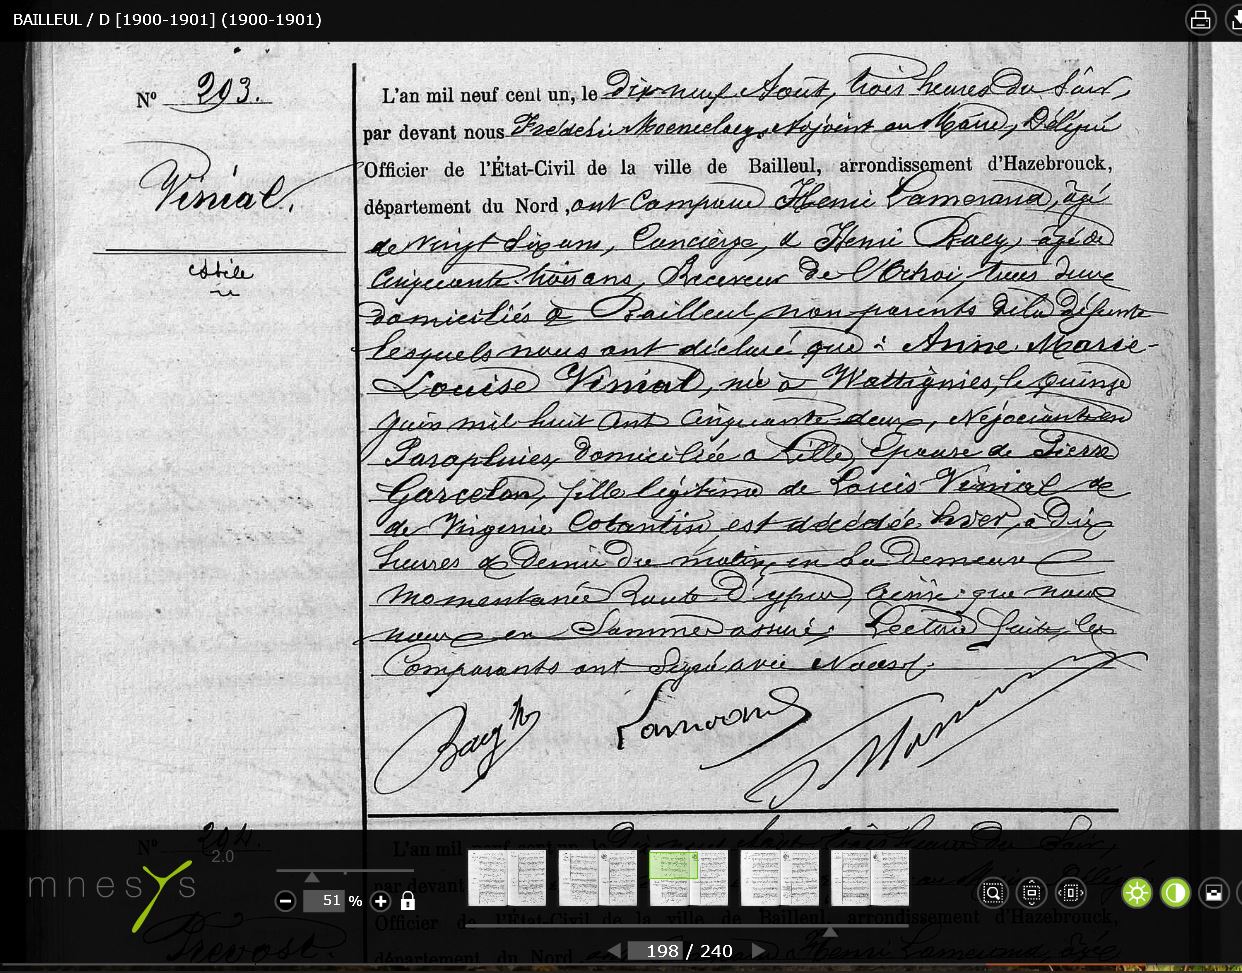 BAILLEUL / D [1900-1901] (1900-1901)
N° 293.
Vinial.
asile
L'an mil neuf cent un, le dix neuf Août, trois heures du Soir,
par devant nous Frédéric Moeneclaey, Adjoint au Maire, Délégué
Officier de l'État-Civil de la ville de Bailleul, arrondissement d'Hazebrouck,
département du Nord, ont comparu Henri Lamerand, âgé
de vingt six ans, Concierge, et Henri Baey, âgé de
cinquante trois ans, Receveur de l'Octroi, tous deux
domiciliés à Bailleul, non parents de la défunte
lesquels nous ont déclaré que : Anne Marie-
Louise Vinial, née à Wattignies, le quinze
juin mil huit cent cinquante deux, Négociante en
Parapluies, domiciliée à Lille, Epouse de Pierre
Garcelon, fille légitime de Louis Vinial et
de Virginie Cotantin, est décédée hier, à dix
heures et demie du matin, en sa demeure
momentanée Route d'ypres, ainsi que nous
nous en sommes assuré; Lecture faite, les
Comparants ont signé avec Nous.
Baey h
Lamerand
N° 294.
L'an mil neuf cent un, le dix neuf Août, trois heures du Soir,
par devant
Officier de l'État-Civil de la ville de Bailleul, arrondissement d'Hazebrouck,
Prévost.
département du Nord, Henri Lamerand, âgé
mnesys 2.0
51 %
198 / 240